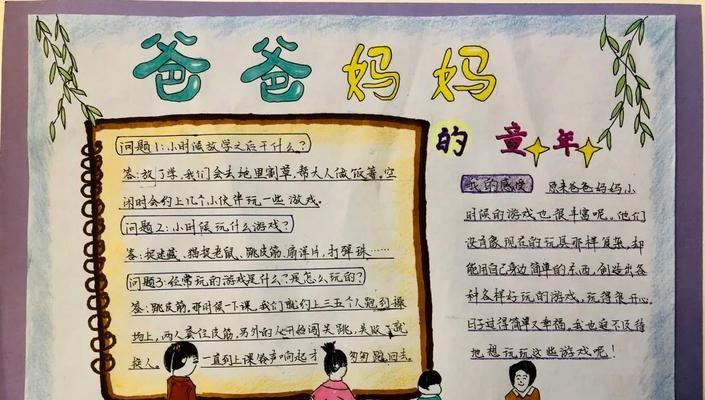 爸爸妈妈
的童年
问题1:小时候放学之后干什么?
答:放了学,我们会去地里割草,帮大人做饭等。空
闲时会约上几个小伙伴玩一些游戏。
问题2:小时候玩什么游戏?
答:捉迷藏、猫捉老鼠、跳皮筋、扇洋片,打弹珠……
问题3:经常玩的游戏是什么?是怎么玩的?
答:跳皮筋,那时候一下课,我们就约上三五个人跑到操
场上,两人牵住皮筋,另外的人开始闯关跳,失败了就
换人。一直到上课铃声响起才匆匆跑回去。
我的感受
原来爸爸妈妈小
时候的游戏也很丰富呢。他们
没有象现在的玩具那样复杂,却
能用自己身边简单的东西,创造出各
种各样好玩的游戏。玩得很开心
日子过得简单又幸福。我也迫不及待
地想玩玩这些游戏呢!